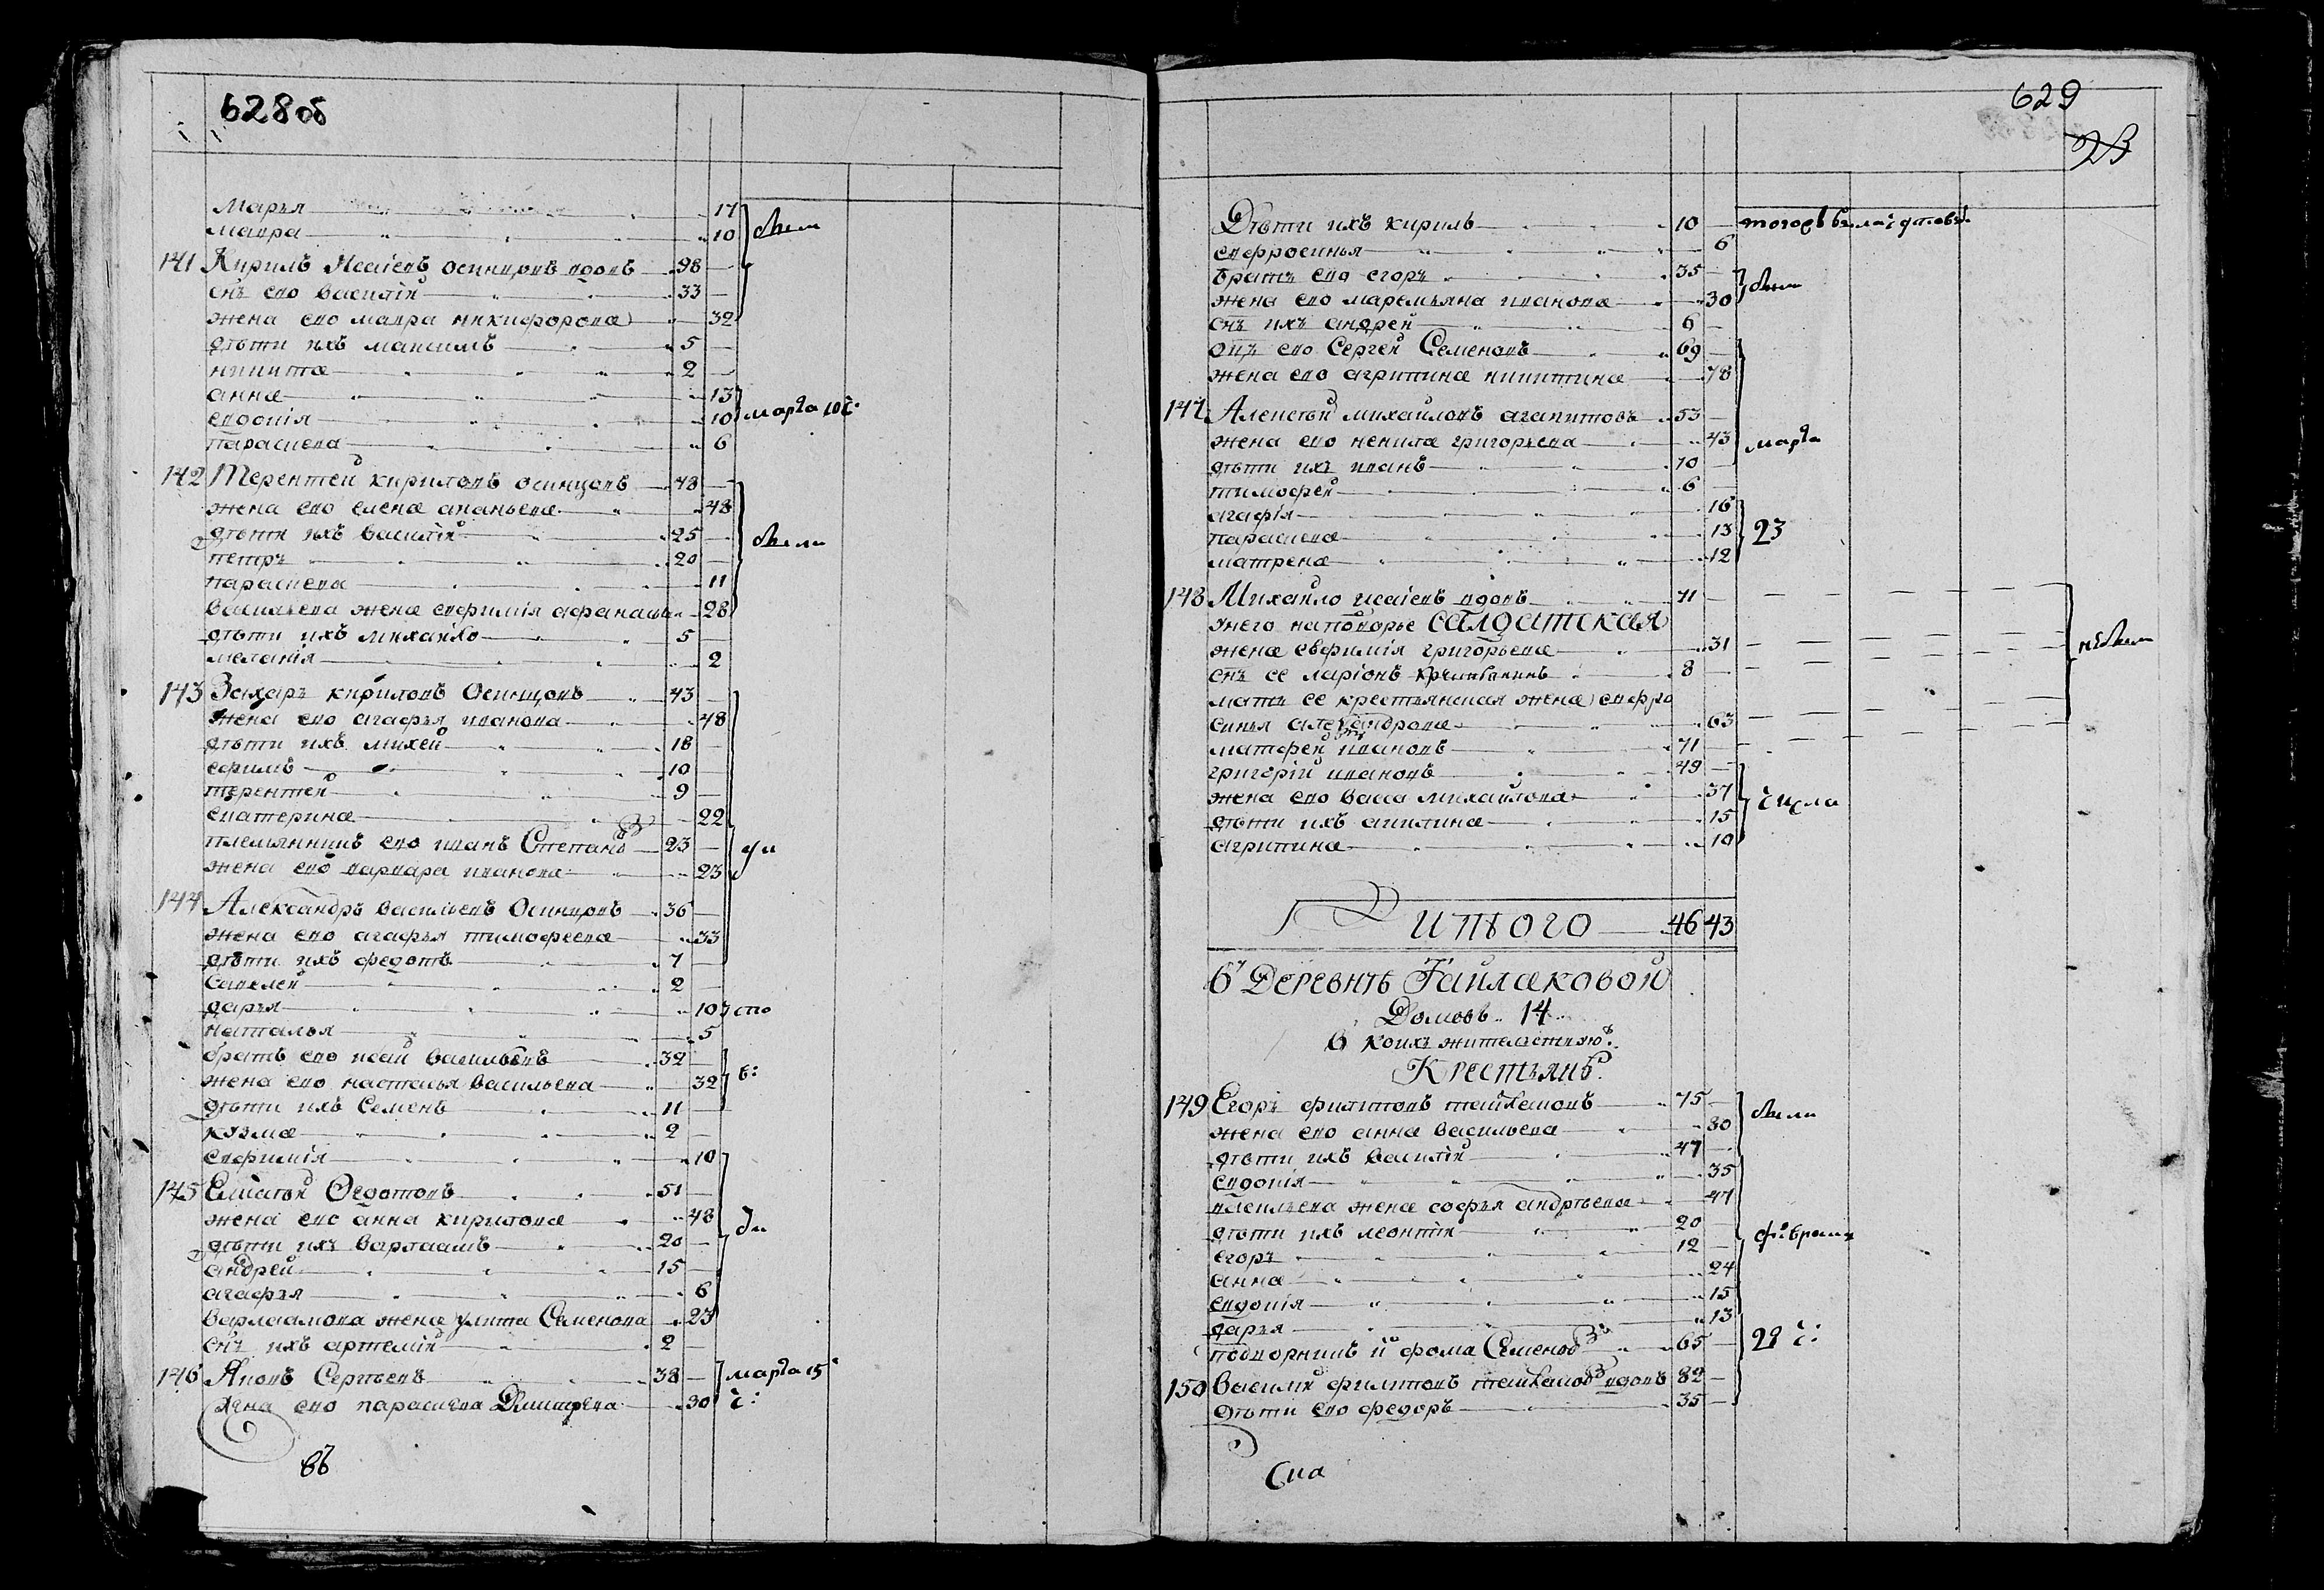 628 об
Марья 17
мавра 10 были
141 Кирилъ Исаiевъ осинцовъ вдовъ 98
снъ ево василiй 33
жена ево мавра никифорова 32
дѣти ихъ максимъ 5
никита 2
анна 13
евдокiя 10 марта 10 ч:
параскева 6
142 Терентей кириловъ осинцовъ 48
жена ево елена ананьева 48
дѣти ихъ василiй 25 были
петръ 20
параскева 11
васильева жена евфимiя афанасьева 28
дѣти ихъ михайло 5
меланiя 2
143 Захаръ кириловъ Осинцовъ 43
жена ево агафья иванова 48
дѣти ихъ михей 18
ефимъ 10
терентей 9
екатерина 22
племянникъ ево иванъ Степановъ 23
жена ево варвара иванова 23
144 Александръ васильевъ Осинцовъ 36
жена ево агафья тимофеева 33
дѣти ихъ федотъ 7
Савелей 2
дарья 10
наталья 5
братъ ево исай васильевъ 32
жена ево наталья васильева 32
дѣти ихъ Семенъ 11
кузма 2
евфимiя 10
145 Елисѣй Федотовъ 51
жена ево анна кирилова 48
дѣти ихъ варлаамъ 20
андрей 15
агафья 6
варлаамова жена улита Семенова 23
снъ ихъ артемiй 2
146 Яковъ Сергѣевъ 38 марта 15
жена ево параскева Димитрева 30 ч:
въ
629
23
Дѣти ихъ кирилъ 10
евфросинья 6
братъ ево егоръ 35
жена ево маремьяна иванова 30 были
снъ ихъ андрей 6
оцъ ево Сергей Семеновъ 69
жена ево агрипина никитина 78
147 Алексѣй михайловъ агапитовъ 53
жена ево ненила григорьева 43 марта
дѣти ихъ иванъ 10
тимофей 6
агафiя 16
параскева 13 23
матрена 12
148 Михайло исаiевъ вдовъ 71
унего наподворье салдатская
жена евфимiя григорьева 31 не были
снъ ее ларiонъ 8
мать ее крестьянская жена евфро
синья александрова 63
матфей ивановъ 71
григорiй ивановъ 49
жена ево васса михайлова 37 числа
дѣти ихъ акилина 15
агрипина 10
итого 46 43
въ Деревнѣ Гайлаковой
Домовъ 14
въ коихъ жительствую:
Крестьянъ.
149 Егоръ филиповъ 75 были
жена ево анна васильева 80
дѣти ихъ василiй 47
евдокiя 35
васильева жена софья андрѣева 47
дѣти ихъ леонтiй 20 февраля
егоръ 12
анна 24
евдокiя 15
дарья 13
подворникъ и фома Семеновъ 65 28 ч:
150 василiй филиповъ вдовъ 82
дѣти ево федоръ 35